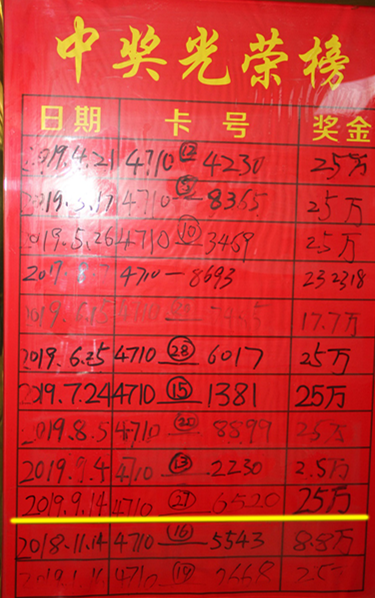 中奖光荣榜
日期 卡号 奖金
2019.4.21 4710 ⑫ 4230 25万
2019.5.17 4710 ⑤ 8365 25万
2019.5.26 4710 ⑩ 3469 25万
4710 — 8693 232318
17.7万
2019.6.25 4710 ㉘ 6017 25万
2019.7.24 4710 ⑮ 1381 25万
2019.8.5 4710 ⑳ 8899 25万
2019.9.4 4710 ⑬ 2230 2.5万
2019.9.14 4710 ㉑ 6520 25万
2018.11.14 4710 ⑯ 5543 8.8万
4710 ⑲ 2668